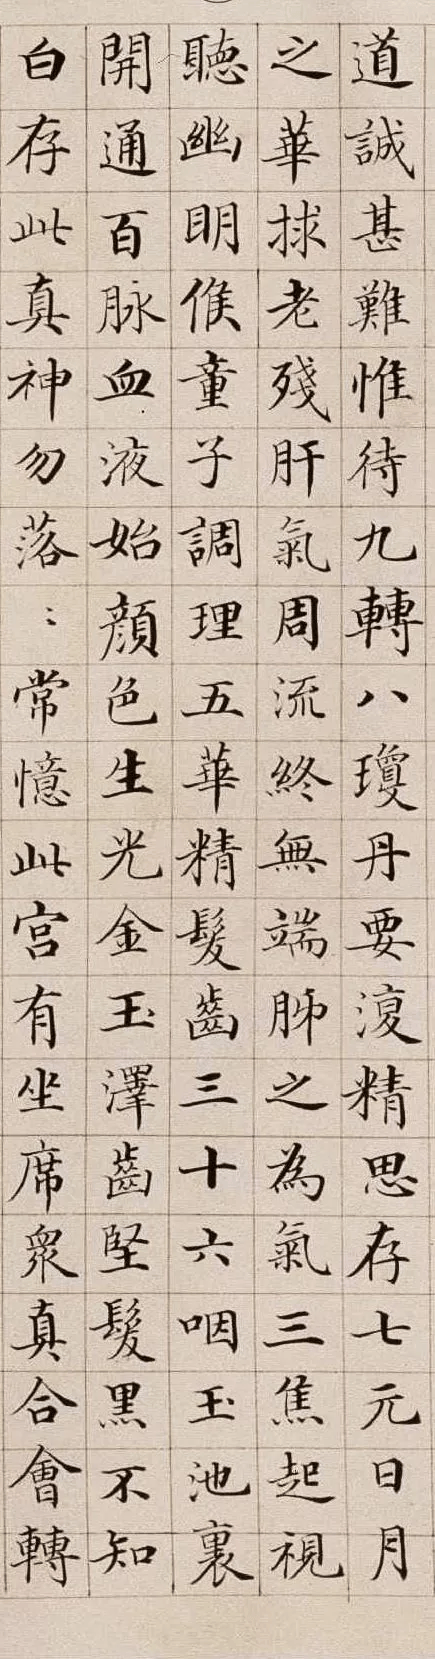 道誠甚難惟待九轉八瓊丹要復精思存七元日月
之華捄老殘肝氣周流終無端肺之為氣三焦起視
聽幽眀俟童子調理五華精髮齒三十六咽玉池裏
開通百脉血液始顏色生光金玉澤齒堅髮黑不知
白存此真神勿落〻常憶此宮有坐席衆真合會轉